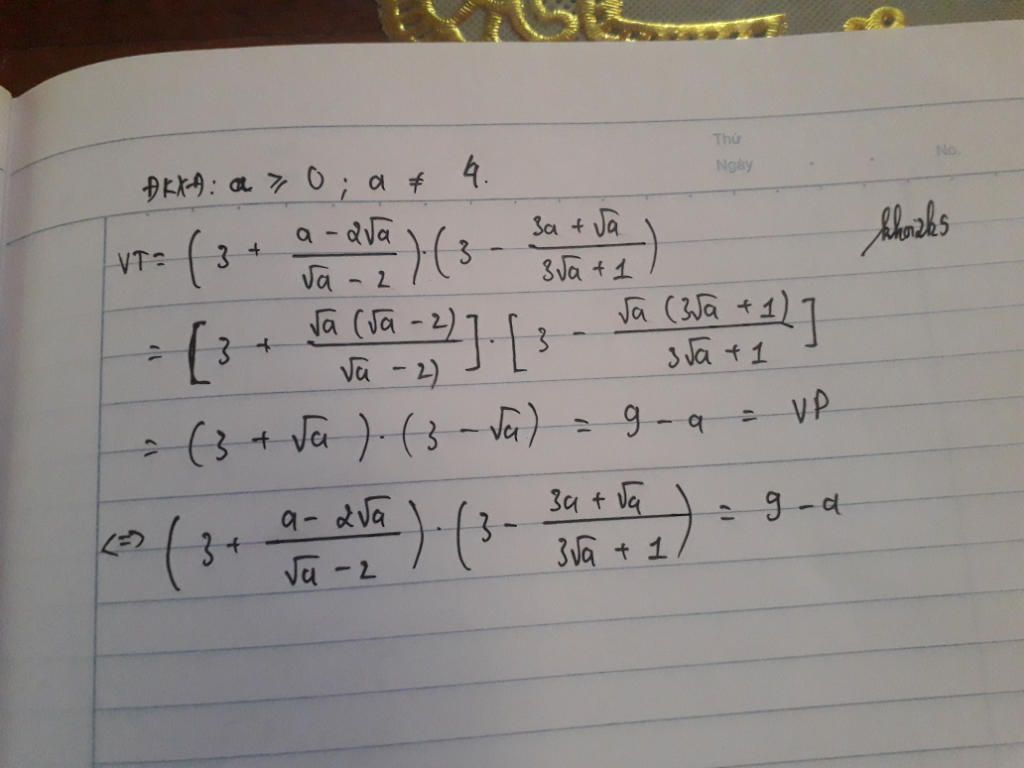 Thứ
Ngày
No.
ĐKXĐ: a ≥ 0 ; a ≠ 4.
khoi2k5
VT = (3 + (a - 2√a)/(√a - 2)) . (3 - (3a + √a)/(3√a + 1))
= [3 + (√a (√a - 2))/(√a - 2))] . [3 - (√a (3√a + 1))/(3√a + 1)]
= (3 + √a) . (3 - √a) = 9 - a = VP
<=> (3 + (a - 2√a)/(√a - 2)) . (3 - (3a + √a)/(3√a + 1)) = 9 - a